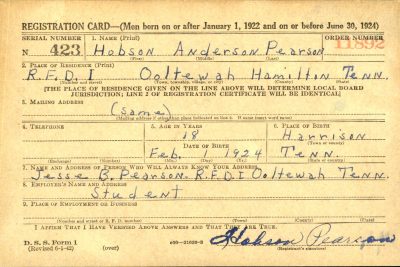 REGISTRATION CARD—(Men born on or after January 1, 1922 and on or before June 30, 1924)
SERIAL NUMBER 1. NAME (Print) ORDER NUMBER
N 423 Hobson Anderson Pearson 11892
(First) (Middle) (Last)
2. PLACE OF RESIDENCE (Print)
R.F.D. 1 Ooltewah Hamilton Tenn.
(Number and street) (Town, township, village, or city) (County) (State)
[THE PLACE OF RESIDENCE GIVEN ON THE LINE ABOVE WILL DETERMINE LOCAL BOARD
JURISDICTION; LINE 2 OF REGISTRATION CERTIFICATE WILL BE IDENTICAL]
3. MAILING ADDRESS
(same)
[Mailing address if other than place indicated on line 2. If same insert word same]
4. TELEPHONE 5. AGE IN YEARS 6. PLACE OF BIRTH
18 Harrison
DATE OF BIRTH (Town or county)
Feb. 1 1924 Tenn.
(Exchange) (Number) (Mo.) (Day) (Yr.) (State or country)
7. NAME AND ADDRESS OF PERSON WHO WILL ALWAYS KNOW YOUR ADDRESS
Jesse B. Pearson. R.F.D. 1 Ooltewah Tenn.
8. EMPLOYER'S NAME AND ADDRESS
Student
9. PLACE OF EMPLOYMENT OR BUSINESS
(Number and street or R. F. D. number) (Town) (County) (State)
I AFFIRM THAT I HAVE VERIFIED ABOVE ANSWERS AND THAT THEY ARE TRUE.
D. S. S. Form 1
(Revised 6-9-42) (over) Hobson Pearson
(Registrant's signature)